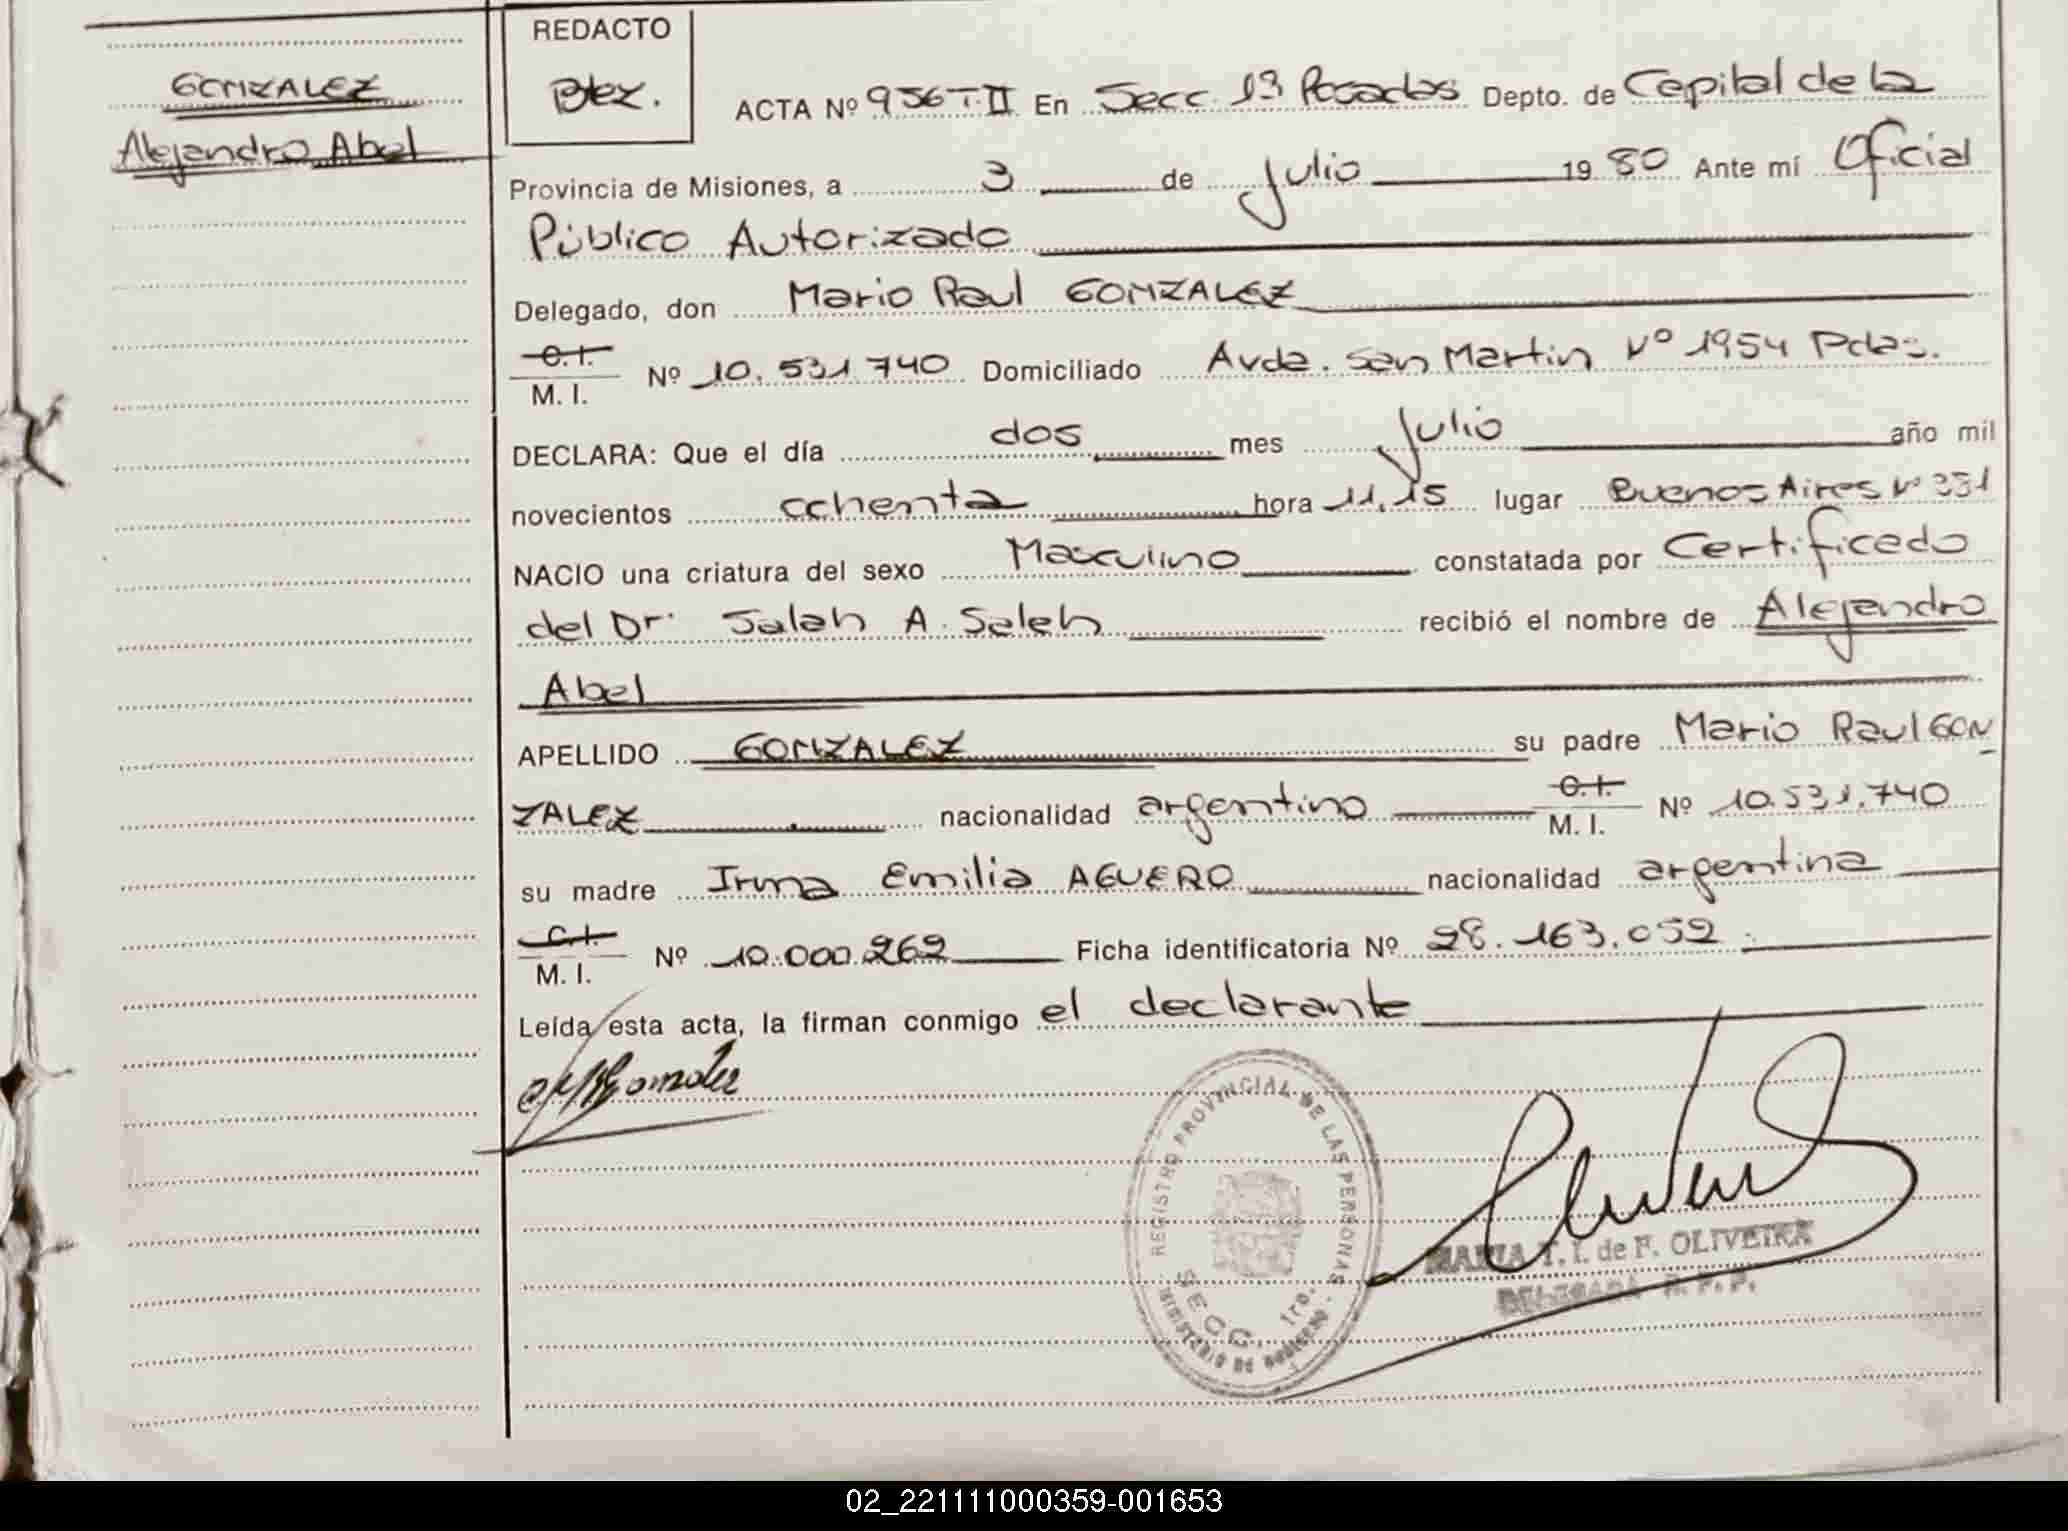 GONZALEZ
Alejandro Abel
REDACTO
Btez.
ACTA Nº 956 T. II En Secc. 1ª Posadas Depto. de Capital de la
Provincia de Misiones, a 3 de Julio 19 80 Ante mí Oficial
Público Autorizado
Delegado, don Mario Raul GONZALEZ
C. I.
M. I. Nº 10.531.740 Domiciliado Avda. San Martin Nº 1954 Pdas.
DECLARA: Que el día dos mes Julio año mil
novecientos ochenta hora 11,15 lugar Buenos Aires Nº 331
NACIO una criatura del sexo Masculino constatada por Certificado
del Dr. Salah A. Saleh recibió el nombre de Alejandro
Abel
APELLIDO GONZALEZ su padre Mario Raul GON
ZALEZ nacionalidad argentino C. I. M. I. Nº 10.531.740
su madre Irma Emilia AGUERO nacionalidad argentina
C. I.
M. I. Nº 10.000.262 Ficha identificatoria Nº 28.163.052
Leída esta acta, la firman conmigo el declarante
REGISTRO PROVINCIAL DE LAS PERSONAS
SECC. 1ra.
MINISTERIO DE GOBIERNO
MARIA T. I. de F. OLIVEIRA
DELEGADA R. P. P.
02_221111000359-001653